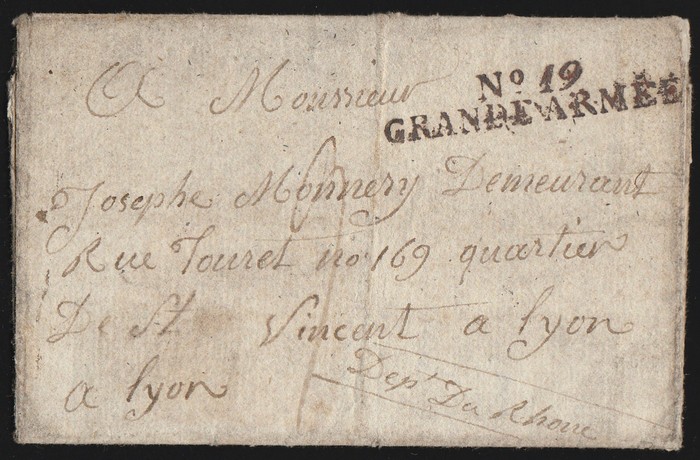 A Monsieur
No 19
GRANDE ARMÉE
Josephe Monnery Demeurant
Rue Touret no 169 quartier
De St Vincent a lyon
a lyon
Dept Du Rhone